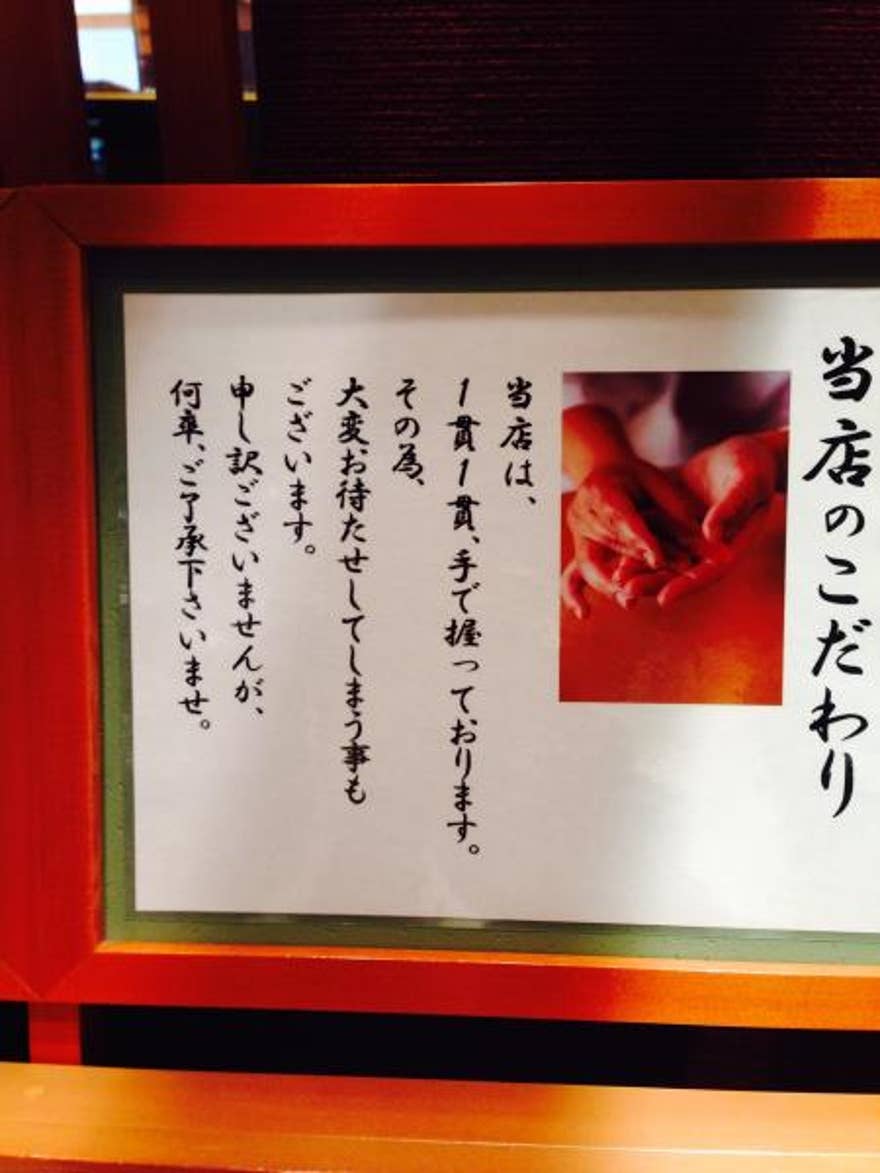 当店のこだわり
当店は、
1貫1貫、手で握っております。
その為、
大変お待たせしてしまう事も
ございます。
申し訳ございませんが、
何卒、ご了承下さいませ。